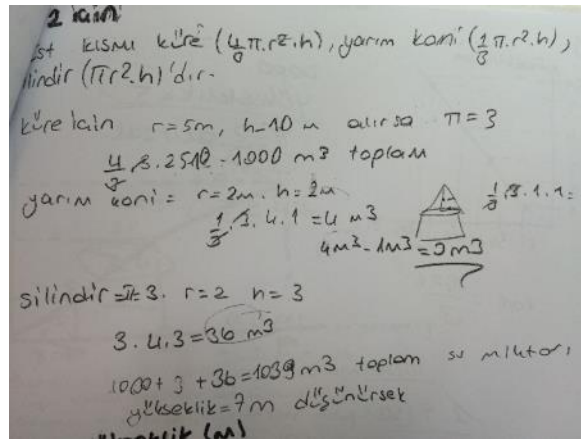 2 için
üst kısmı küre (4/3 π.r².h), yarım koni (1/3 π.r².h),
silindir (πr².h)'dır.
küre için r=5m, h-10 m alırsa π=3
4/3 . 3. 2510 - 1000 m3 toplam
yarım koni = r=2m. h=2m
1/3 . 3. 4. 1 = 4 m3
1/3 . 3. 1. 1 =
4m3 - 1m3 = 3m3
silindir = π=3. r=2 h=3
3. 4. 3 = 36 m3
1000 + 3 + 36 = 1039 m3 toplam su miktarı
yükseklik = 7m düşünürsek